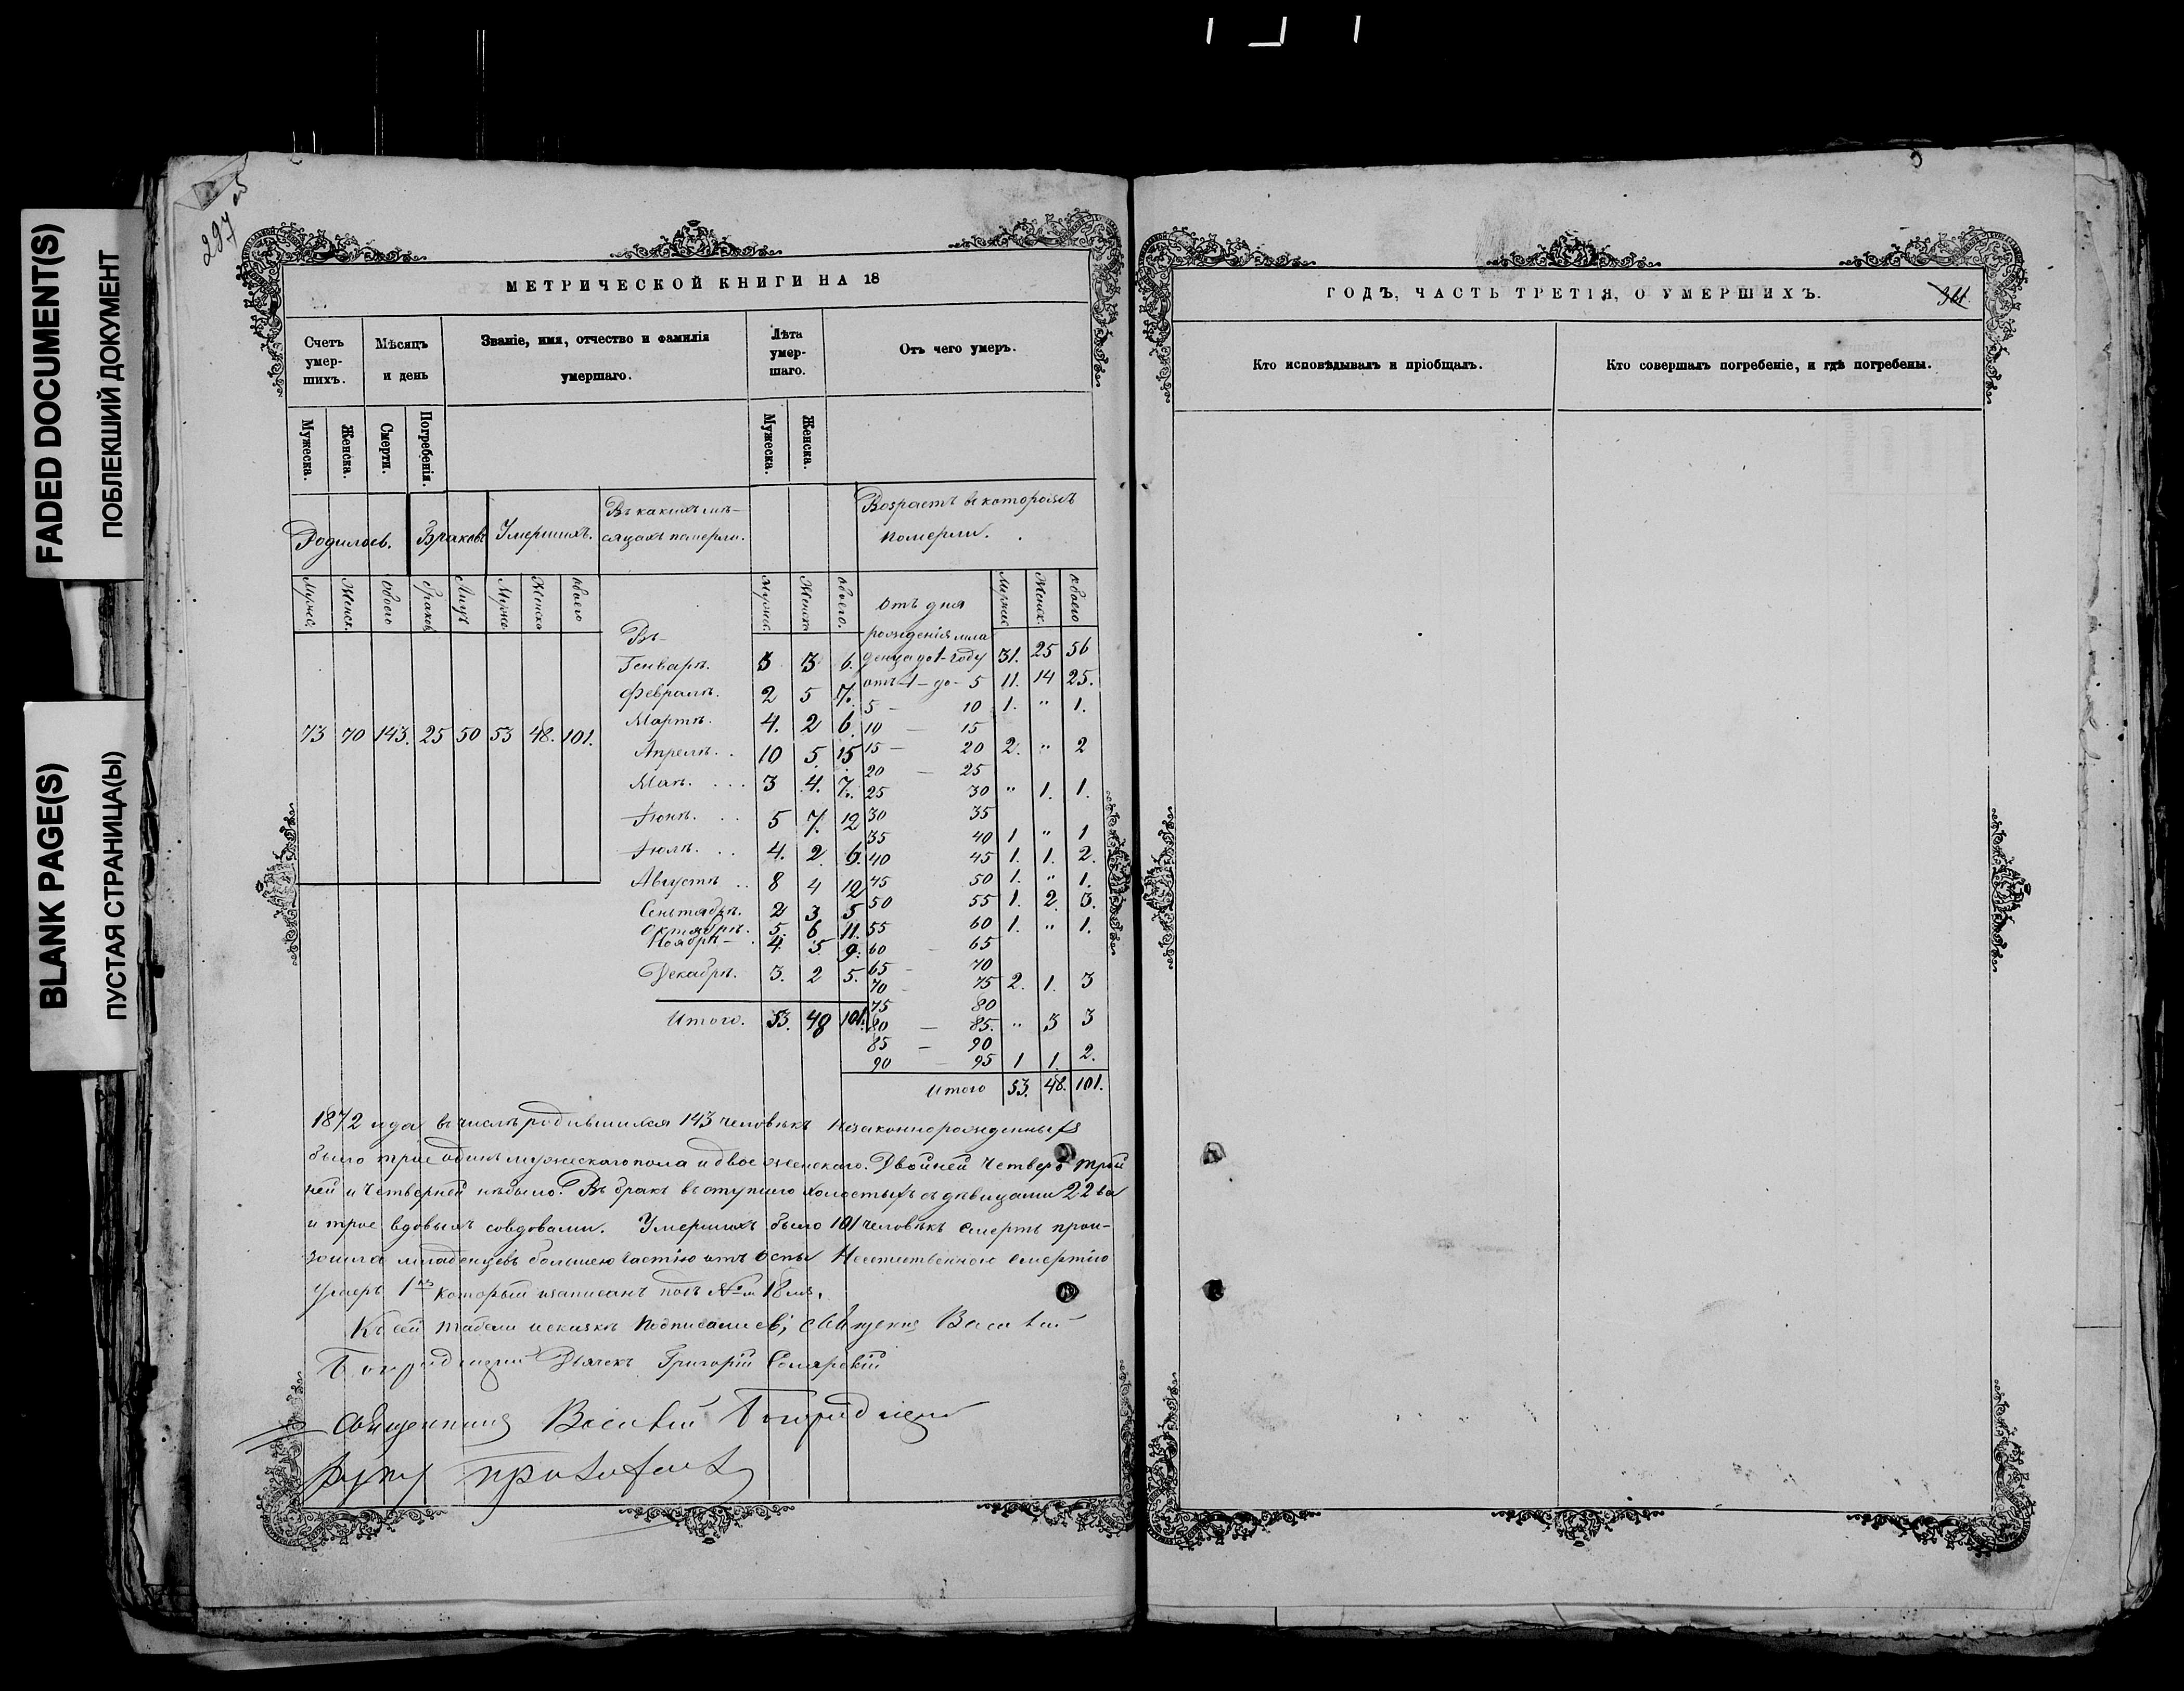 FADED DOCUMENT(S)
ПОБЛЕКШИЙ ДОКУМЕНТ
BLANK PAGE(S)
ПУСТАЯ СТРАНИЦА(Ы)
297 об
МЕТРИЧЕСКОЙ КНИГИ НА 18
Счетъ умер-шихъ. Мѣсяцъ и день Званіе, имя, отчество и фамилія умершаго. Лѣта умер-шаго. Отъ чего умеръ.
Мужеска. Женска. Смерти. Погребенія. Мужеска. Женска.
Родилось. Браковъ Умершихъ. Въ какихъ мѣ-сяцахъ померли. Возрастъ въ которомъ померли.
Мужес. Женск. Обоего Браков Лицъ Мужес. Женска обоего Мужеск. Женска обоего. Мужеск Женск. обоего
73 70 143. 25 50 53 48. 101.
Въ
Генварѣ. 3 3 6.
Февралѣ. 2 5 7.
Мартѣ. 4. 2 6.
Апрелѣ. 10 5. 15
Маѣ. 3 4. 7.
Іюнѣ. 5 7. 12
Іюлѣ. 4. 2. 6.
Августѣ 8 4 12
Сентябрѣ. 2 3 5
Октябрѣ. 5. 6 11.
Ноябрѣ 4. 5 9.
Декабрѣ. 3. 2 5.
Итого. 53. 48 101.
отъ дня
рожденія мла
денца до 1 году 31. 25 56
отъ 1 - до - 5 11. 14 25.
5 - 10 1. " 1.
10 - 15
15 - 20 2. " 2
20 - 25
25 30 " 1. 1.
30 35
35 40 1 " 1
40 45 1. 1. 2.
45 50 1. " 1.
50 55 1. 2 3.
55 60 1. " 1.
60 - 65
65 - 70
70 - 75 2. 1. 3
75 80
80 - 85. " 3 3
85 - 90
90 - 95 1 1. 2.
Итого 53. 48. 101.
1872 года въ числѣ родившихся 143 человѣкъ Незаконнорожденныхъ
было трое одинъ мужескаго пола и двое женскаго. Двойней Четверо трой
ней и Четверней небыло. Въ бракъ вступило холостыхъ съ дѣвицами 22
и трое вдовыхъ совдовами. Умершихъ было 101 человѣкъ Смерть прои-
зошла младенцевъ большею частію отъ оспы Неестественною смертію
умеръ 1 который записанъ подъ № 18
Къ сей табели Подписались; священникъ Василій
Дьячекъ Григорій
Священникъ Василій
руку приложилъ
ГОДЪ, ЧАСТЬ ТРЕТІЯ, О УМЕРШИХЪ.
361.
Кто исповѣдывалъ и пріобщалъ. Кто совершалъ погребеніе, и гдѣ погребены.